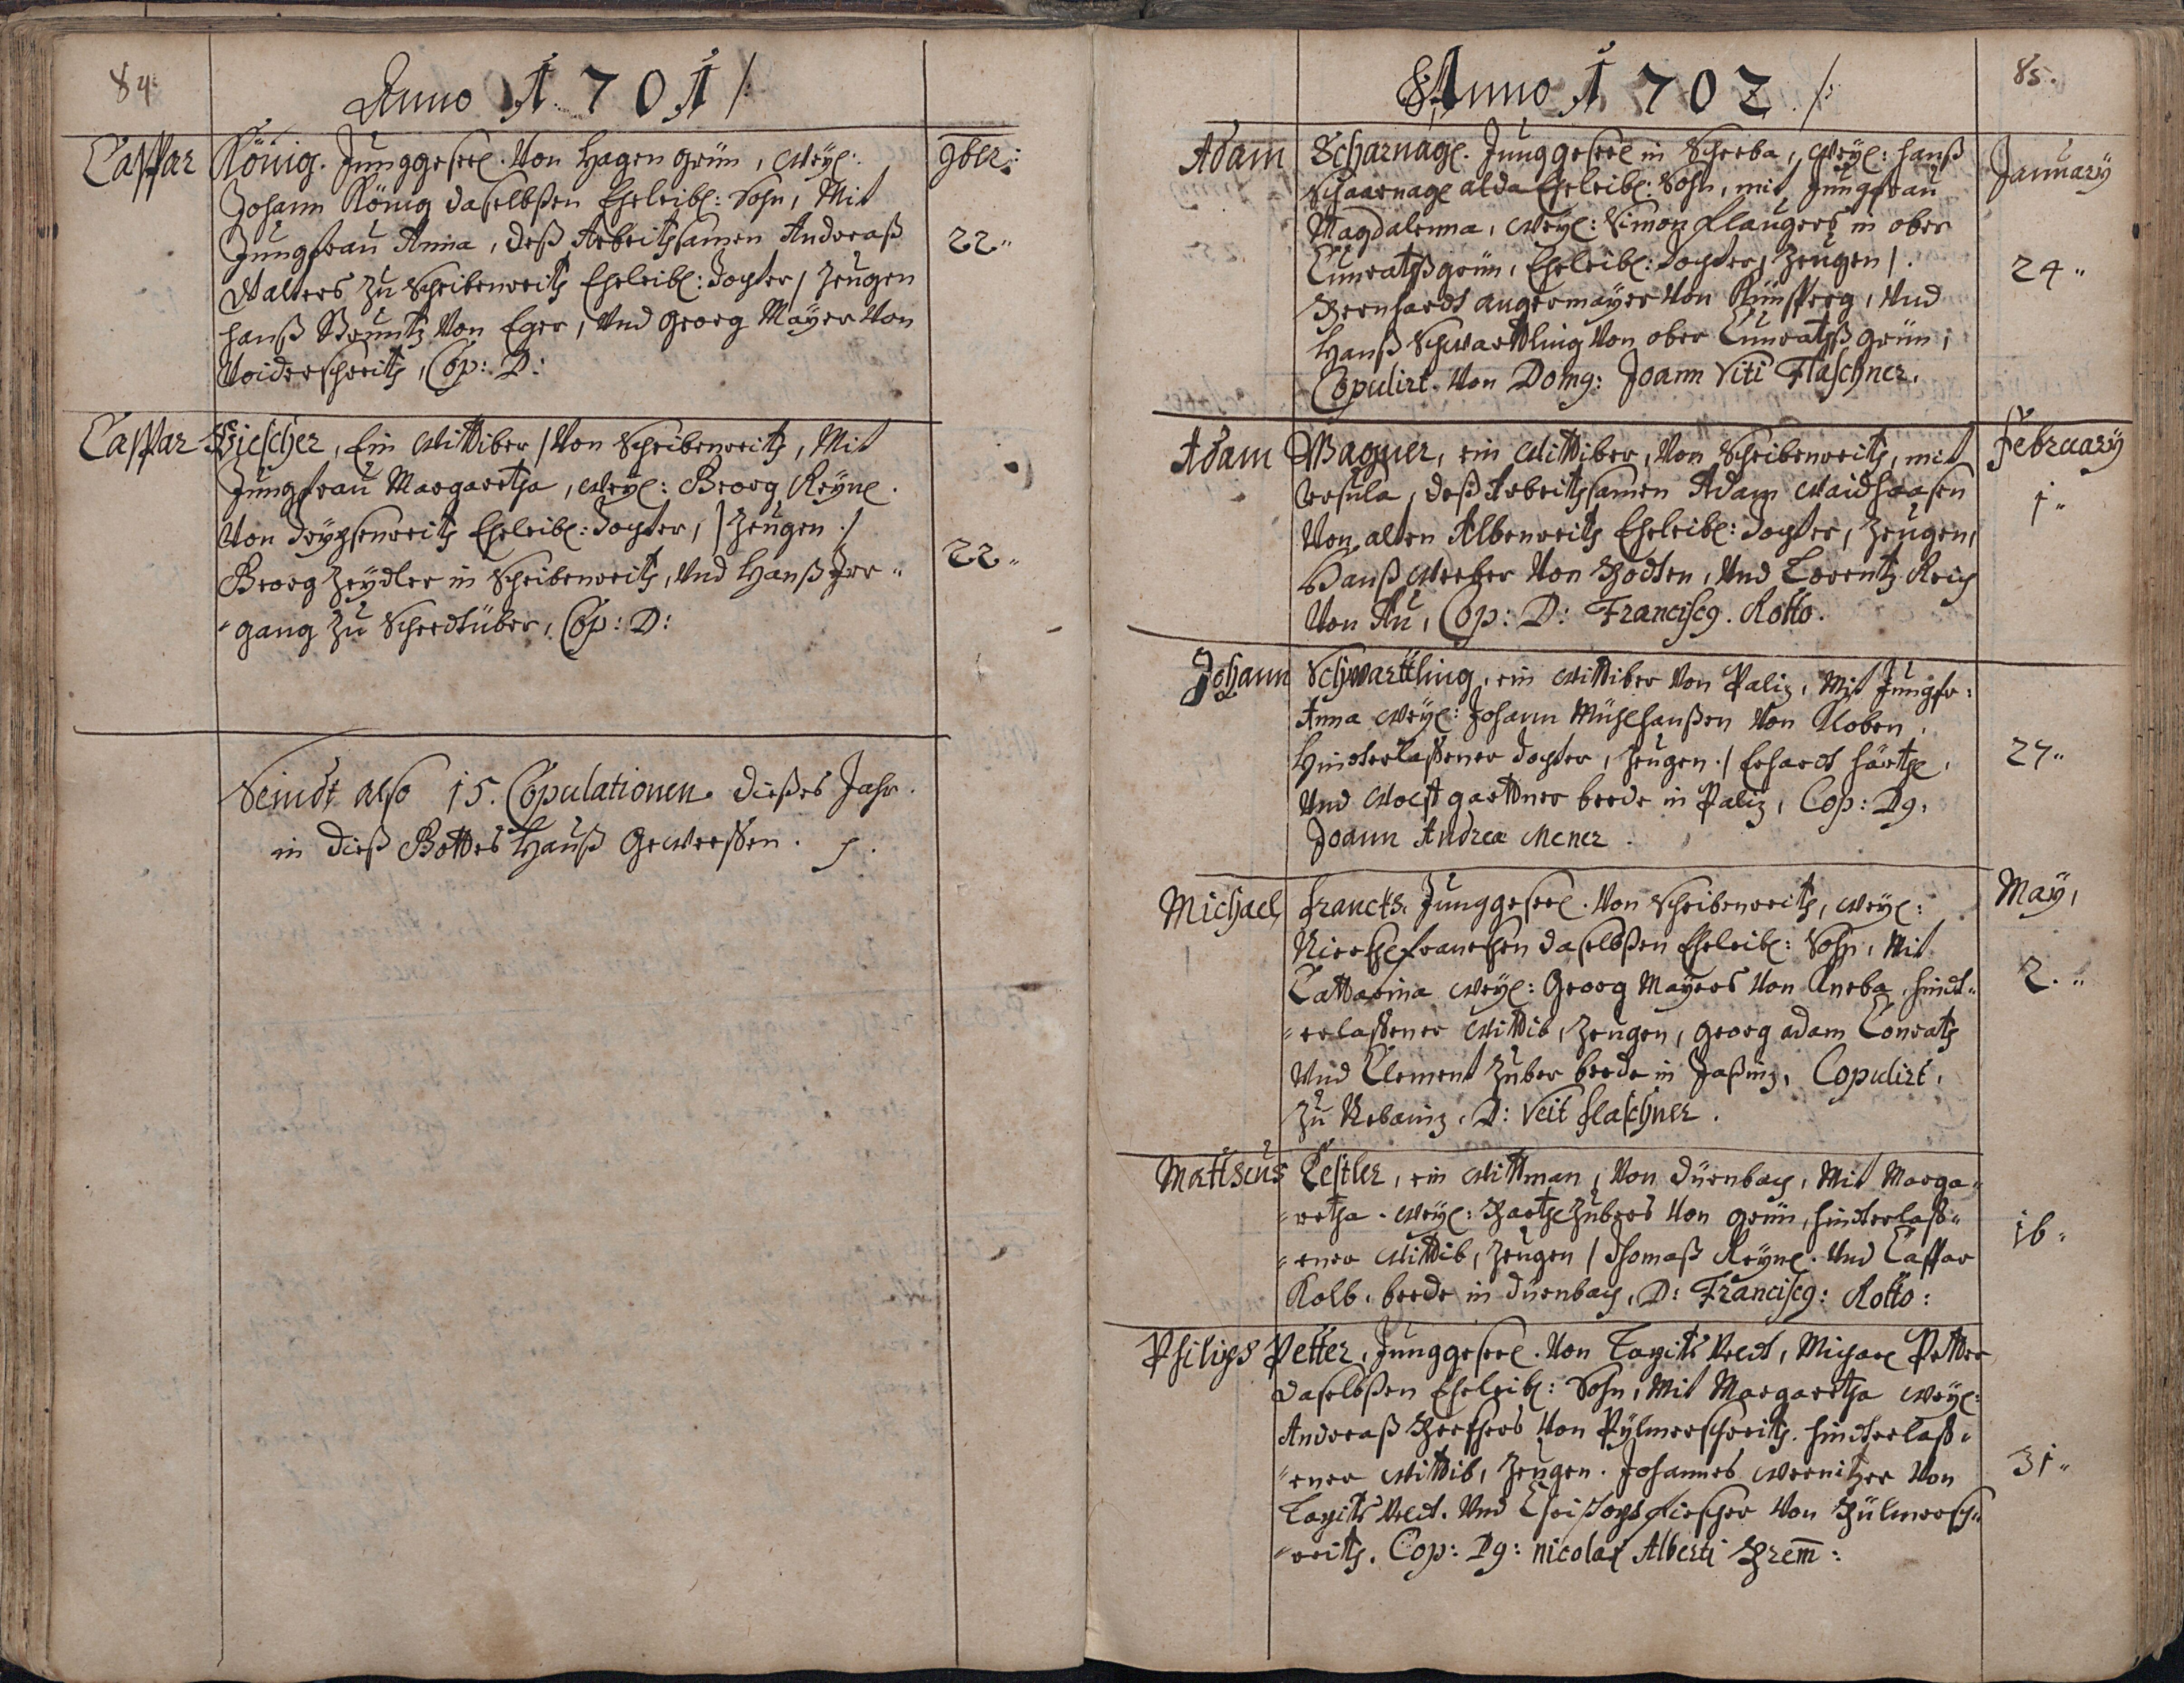 84.
Anno 1701 /:
Caspar König. Junggesell. Von Hagengrün, Weyl:
Johann König daselbsten Eheleibl: Sohn, Mit
Jungfrau Anna, deß Arbeitsamen Andreaß
Walters zu Scheibenreith Eheleibl: Dochter / Zeugen
Hanß Von Eger, Und Georg Mayer Von
Voiderschreith, Cop: D:
9ber:
22"
Caspar Fiescher, Ein Wittiber / Von Scheibenreith, Mit
Jungfrau Margaretha, Weyl: Georg Reynl.
Von Eheleibl: Dochter, / Zeugen /
Georg Zeydler in Scheibenreith, Und Hanß Irr"
"gang Zu Scheedtüber, Cop: D:
22"
Seindt also 15. Copulationen dießes Jahr.
in dieß Gottes Hauß Geweeßen.
85.
Anno 1702 /:
Adam Scharnagl. Junggesell in Scheba, Weyl: Hanß
Schaarnagl alda Eheleibl: Sohn, mit Jungfrau
Magdalenna, Weyl: Simon Flaugers in ober
Cunratßgrün, Eheleibl: Dochter, Zeugen /.
Bernhardt angermayer Von Künsperg, Und
Hanß Schwarttling Von ober Cunratßgrün,
Copulirt. Von Domg: Joann Viti Flaschner.
January
24"
Adam Wagner, ein Wittiber, Von Scheibenreith, mit
Ursula, deß Arbeitsamen Adam Waidhaasen
Von alten Albenreith Eheleibl: Dochter, Zeugen,
Hanß Weeber Von Boden, Und Lorentz Reich
Von Au, Cop: D: Francisc9. Rotto.
February
1"
Johann Schwarttling, ein Wittiber Von Paliz, Mit Jungfr:
Anna Weyl: Johann Mühlhaußen Von Kloben,
Hinderlaßener Dochter, Zeugen. / Erhardt Härtl,
Und Wolf gartner beede in Paliz, Cop: D9.
Joann Andrea Mener.
27"
Michael Francks. Junggesell. Von Scheibenreith, Weyl:
daselbsten Eheleibl: Sohn, Mit
Cattarina Weyl: Georg Mayers Von Kneba, hindt"
"erlaßener Wittib, Zeugen, Georg adam Conrath
Und Clement Zuber beede in Copulirt,
Zu Nebaniz. D: Veit Flaschner.
May,
2."
Matiseus Lestler, ein Wittman, Von Dürnbach, Mit Marga"
"retha. Weyl: Bartl Zubers Von grün, hinderlaß"
"ener Wittib, Zeugen / Thomaß Reynl. Und Caspar
Kolb. beede in Dürnbach, D: Francisc9: Rotto:
16"
Philips Petter, Junggesell. Von Michael Petter
daselbsten Eheleibl: Sohn, Mit Margaretha Weyl:
Andreaß Von Pylmerschreith. hinderlaß"
"ener Wittib, Zeugen. Johannes Wernitzer Von
Und Christoph Fiescher Von Bülmersch"
"reith. Cop: D9: Nicolai Alberti Brem̄:
31"